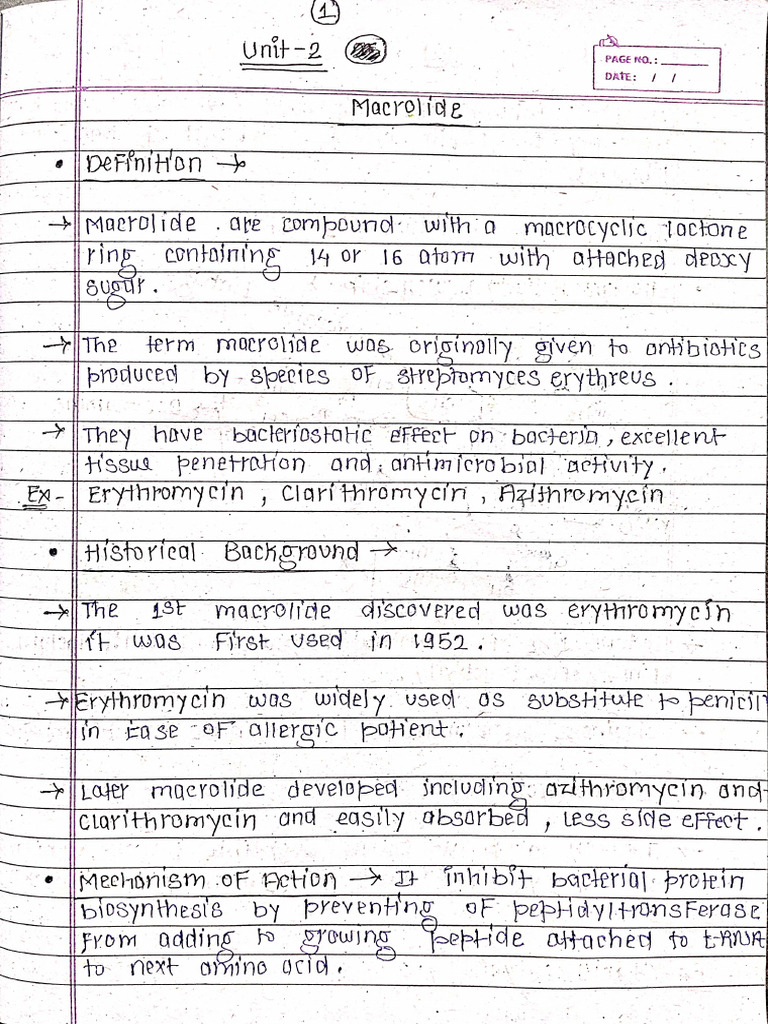 1
Unit-2
PAGE NO.:
DATE: / /
Macrolide
• Definition →
→ Macrolide are compound with a macrocyclic lactone
ring containing 14 or 16 atom with attached deoxy
sugar.
→ The term macrolide was originally given to antibiotics
produced by species of streptomyces erythreus.
→ They have bacteriostatic effect on bacteria, excellent
tissue penetration and antimicrobial activity.
Ex- Erythromycin, Clarithromycin, Azithromycin
• Historical Background →
→ The 1st macrolide discovered was erythromycin
it was first used in 1952.
→ Erythromycin was widely used as substitute to penicil
in case of allergic patient.
→ Later macrolide developed including azithromycin and
clarithromycin and easily absorbed, less side effect.
• Mechanism of Action → It inhibit bacterial protein
biosynthesis by preventing of peptidyltransferase
from adding to growing peptide attached to t-RNA
to next amino acid.